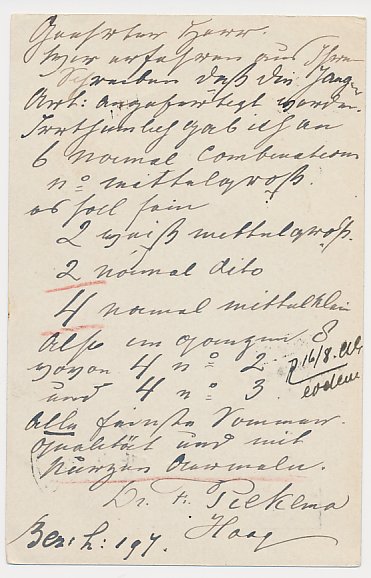 Geehrter Herr.
Wir erfahren aus Ihrem
Schreiben daß die
Art: angefertigt werden.
Irrthümlich gab ich an
6 Normal Combinations
no mittelgroß.
es soll sein
2 weiß mittelgroß.
2 normal dito
4 normal mittelklein
Also im ganzen 8
wovon 4 no 2
und 4 no 3
Alle feinste Sommer
qualität und mit
kurzen Aermeln.
Dr. F. Pelkema
Haag
16/8.